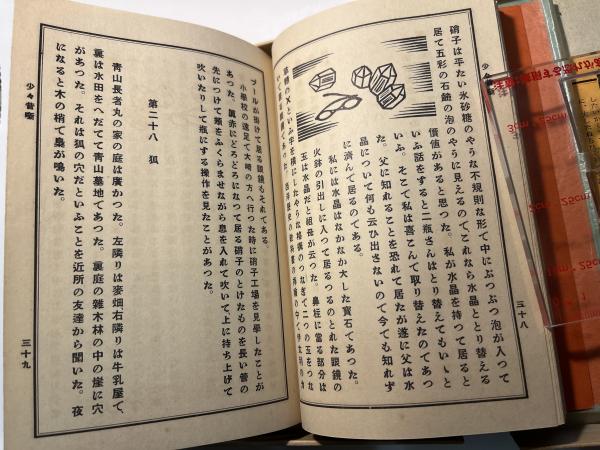 少々昔噺
三十八
硝子は平たい氷砂糖のやうな不規則な形で中にぶつぶつ泡が入つて
居て五彩の石鹸の泡のやうに見えるのでこれなら水晶ととり替える
價値があると思つた。私が水晶を持つて居ると
いふ話をすると二瓶さんはとり替えてもいゝと
いふ。そこで私は喜こんで取り替えたのであつ
た。父に知れることを恐れて居たが遂に父は水
晶について何も云ひ出さないので今でも知れず
に濟んで居るのである。
私には水晶はなかなか大した寶石であつた。
火鉢の引出しに入つて居るつるのとれた眼鏡の
玉は水晶だと祖母が云つた。鼻柱に當る部分は
プールが掛けて居る眼鏡もそれである。
小學校の遠足で大崎の方へ行つた時に硝子工場を見學したことが
あつた。眞赤にどろどろになつて居る硝子のとけたものを長い管の
先につけて頬をふくらませながら息を入れて吹いて、上に持ち上げて
吹いたりして瓶にする操作を見たことがあつた。
第二十八 狐
青山長者丸の家の庭は廣かつた。左隣りは麥畑右隣りは牛乳屋で、
裏は水田をへだてて青山墓地であつた。裏庭の雜木林の中の崖に穴
があつた。それは狐の穴だといふことを近所の友達から聞いた。夜
になると木の梢で梟が鳴いた。
少々昔噺
三十九